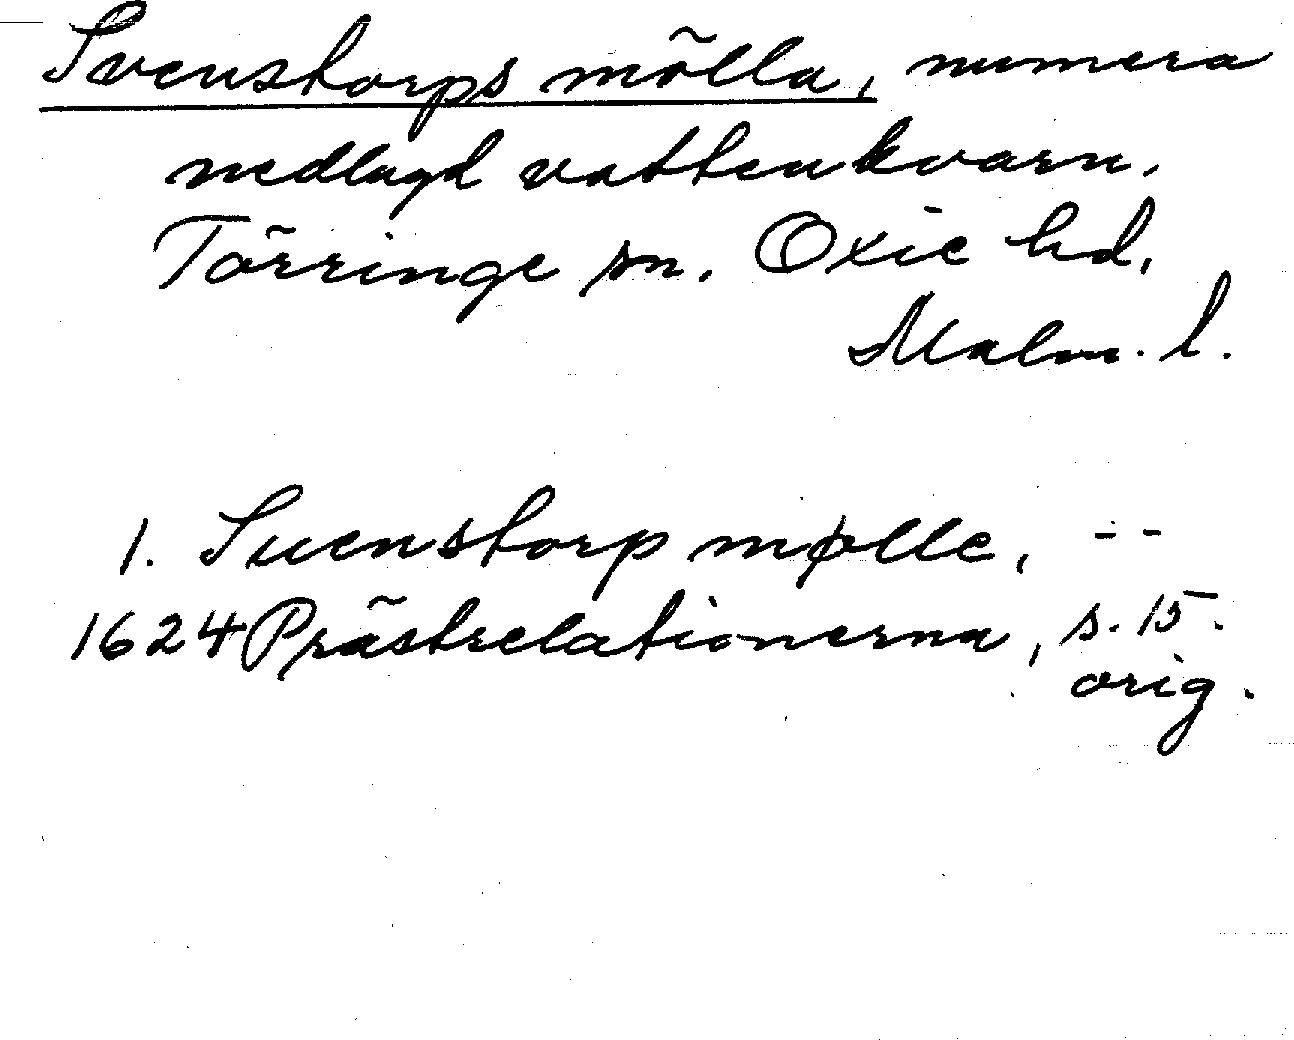 Svenstorps mölla, numera
nedlagd vattenkvarn.
Törringe sn. Oxie hd.
Malm. l.
1. Suenstorp mølle, --
1624 Prästrelationerna, s. 15.
orig.